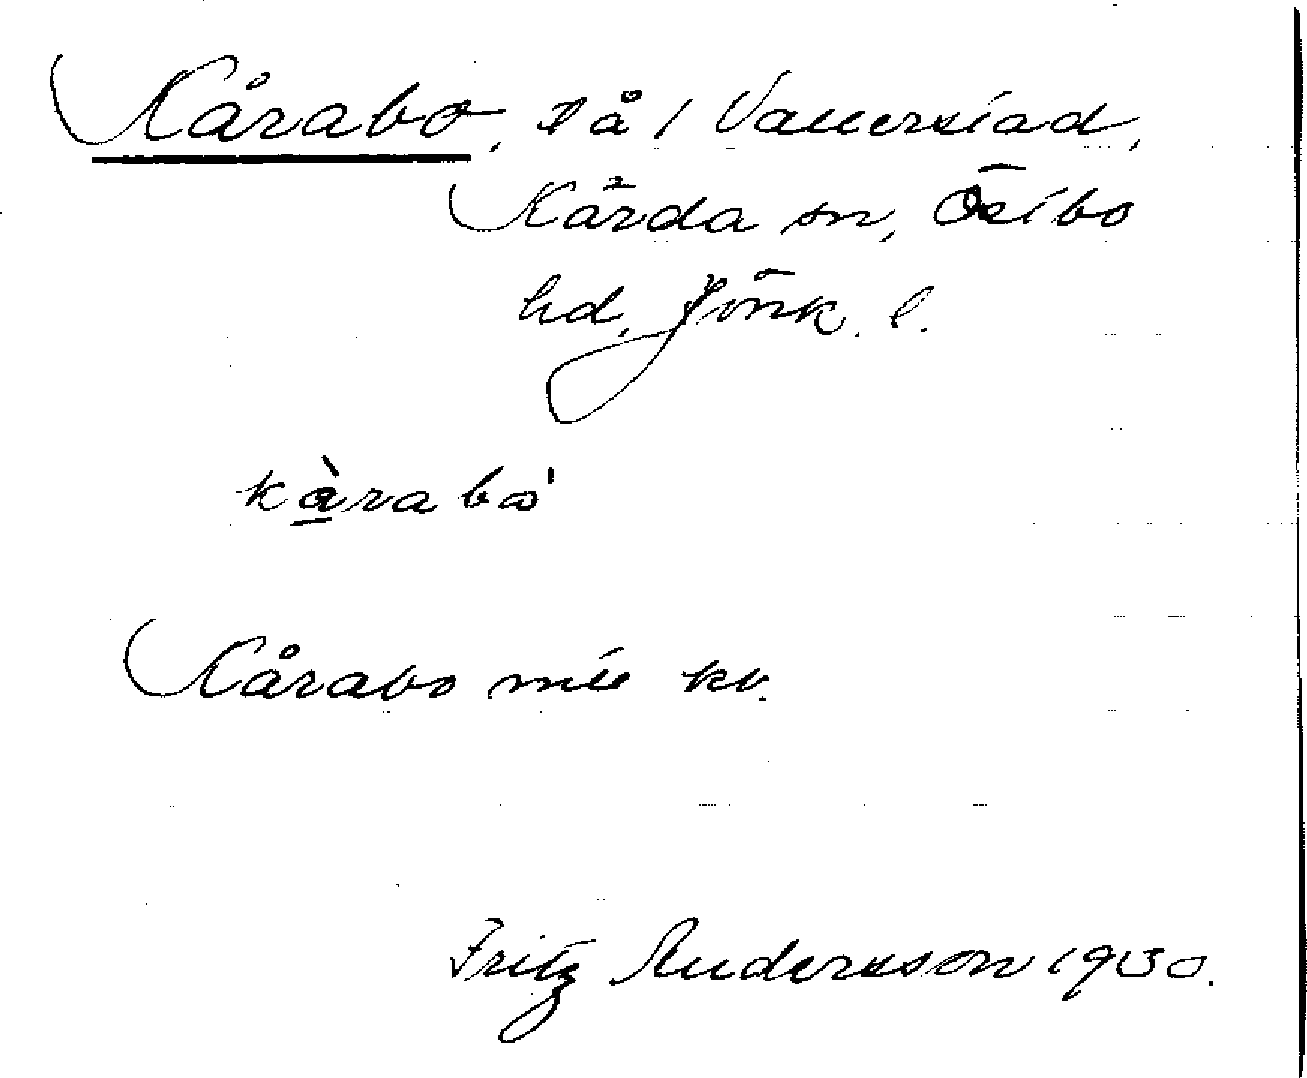 Kårabo, på / Vallerstad,
Kärda sn, Östbo
hd, Jönk. l.
kàrabo'
Kårabo mll kv.
Fritz Andersson 1930.